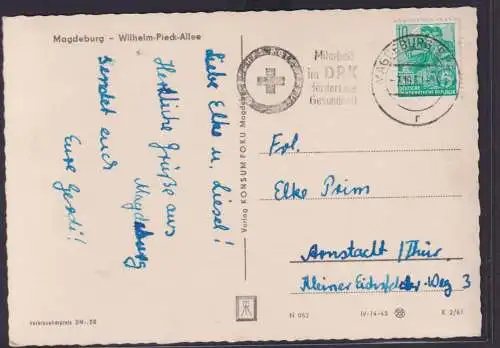 Magdeburg - Wilhelm-Pieck-Allee
Liebe Elke u. Liesel!
Herzliche Grüße aus
Magdeburg
sendet euch
Eure
Verlag KONSUM FOKU Magdeburg
Mitarbeit
im DRK
fördert die
Gesundheit
MAGDEBURG
r
10
DEUTSCHE
DEMOKRATISCHE REPUBLIK
Frl.
Elke Prim
Arnstadt / Thür.
Kleiner Eichsfelder-Weg 3
Verbraucherpreis DM -.20
N 063
IV-14-45
K 2/61